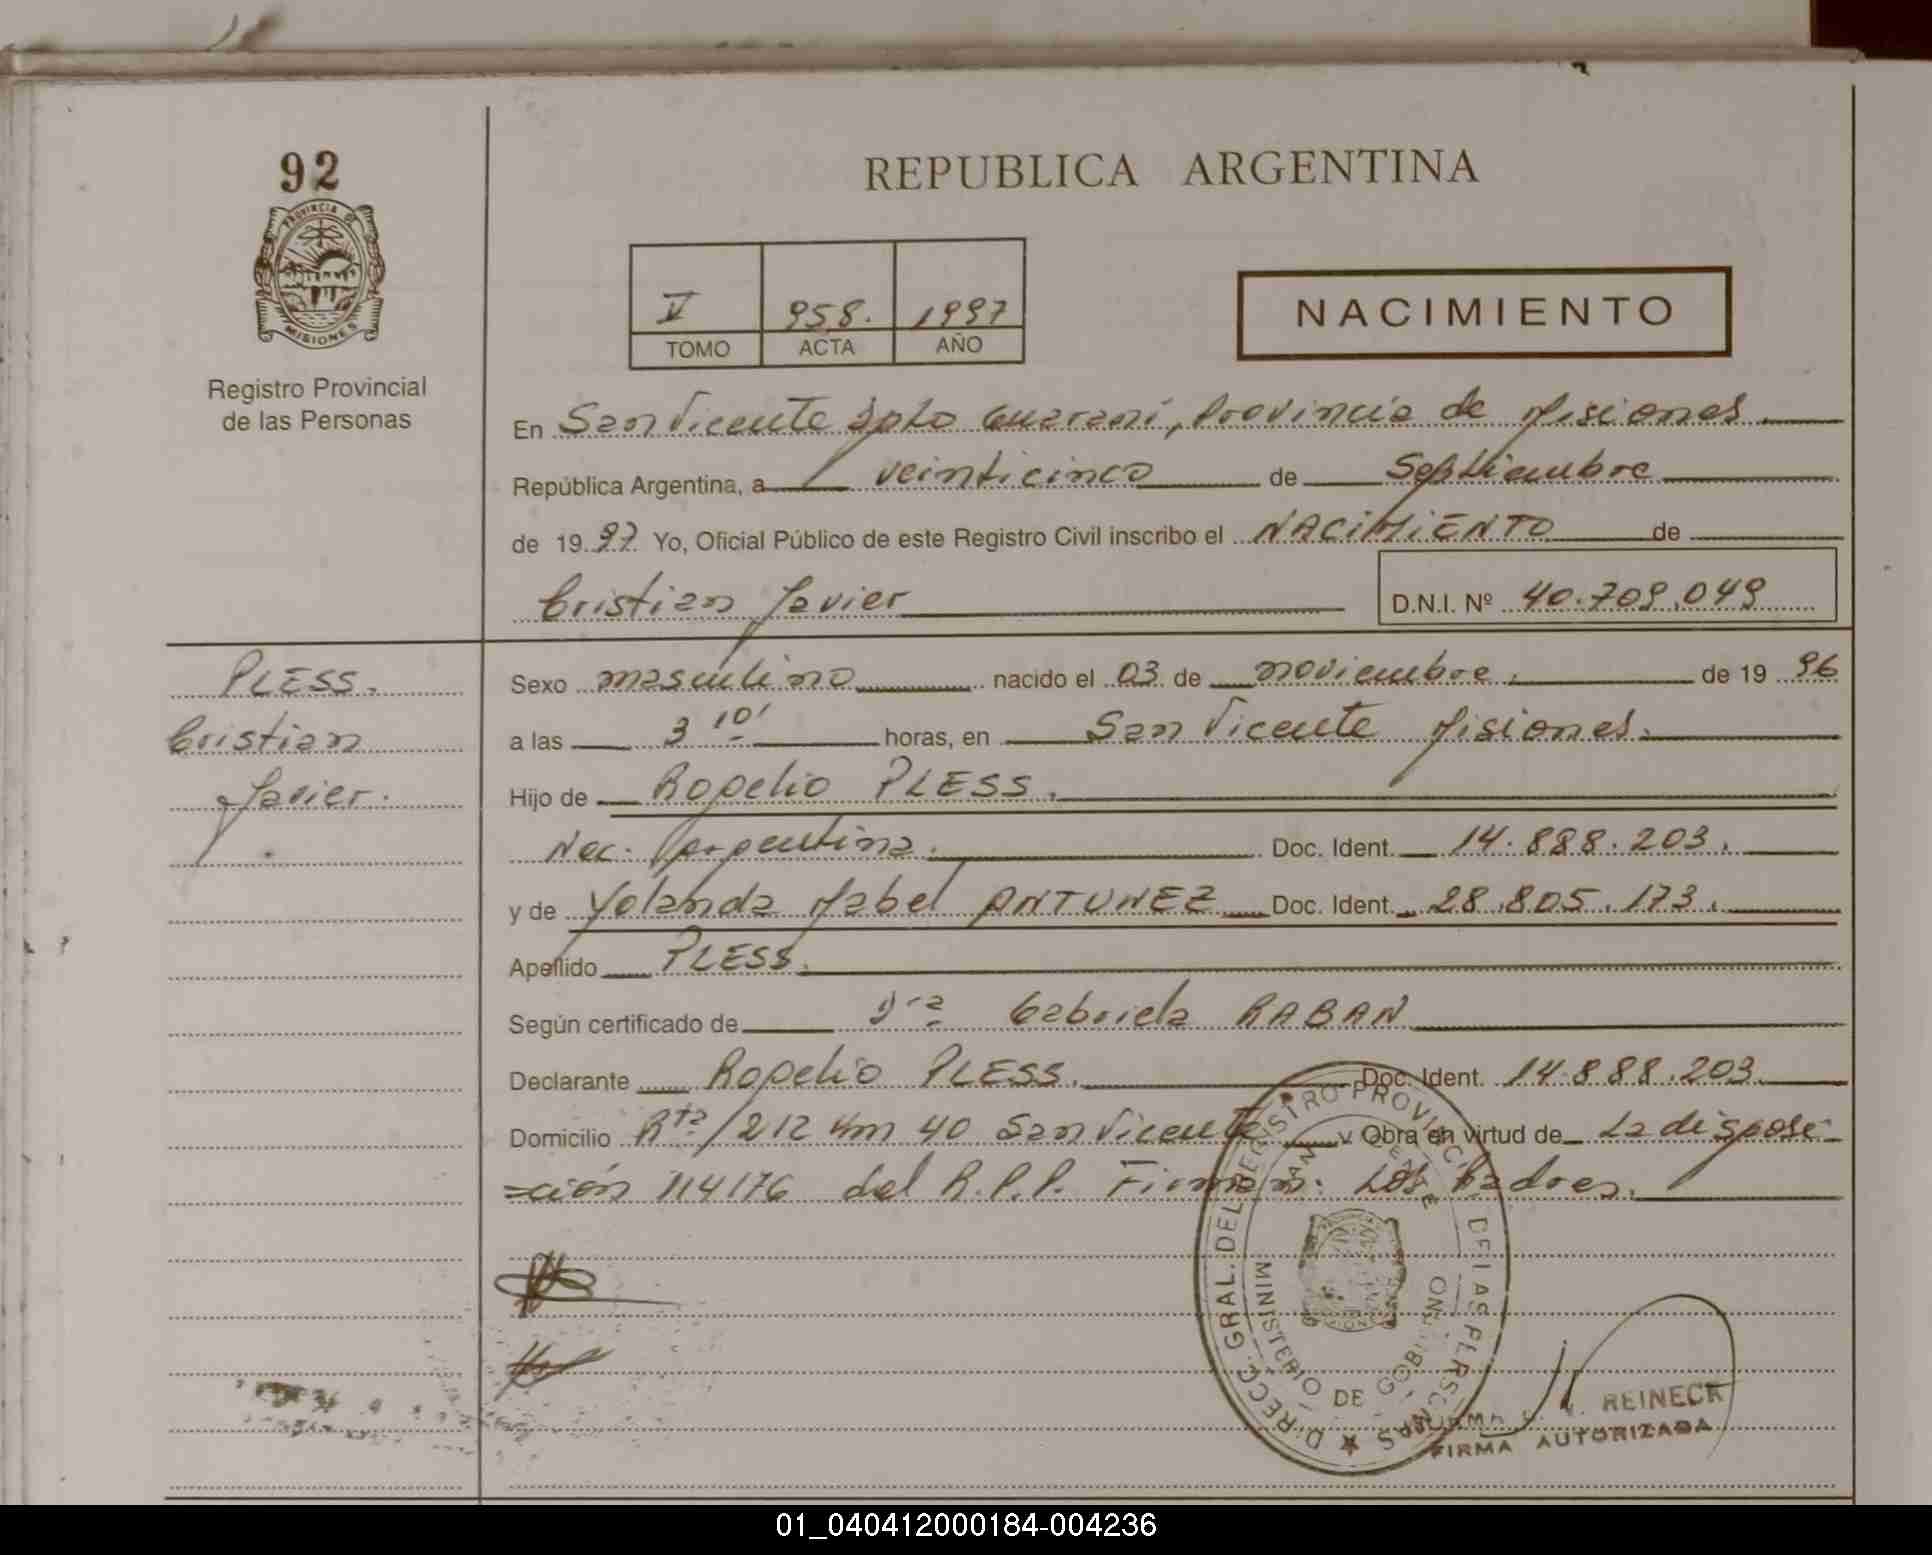 92
PROVINCIA DE
MISIONES
Registro Provincial
de las Personas
REPUBLICA ARGENTINA
V 958. 1997
TOMO ACTA AÑO
NACIMIENTO
En San Vicente Dpto Guaraní, Provincia de Misiones.
República Argentina, a veinticinco de Septiembre
de 1997 Yo, Oficial Público de este Registro Civil inscribo el NACIMIENTO de
Cristian Javier D.N.I. Nº 40.709.049
PLESS.
Cristian
Javier.
Sexo masculino nacido el 03 de noviembre. de 1996
a las 3 10' horas, en San Vicente Misiones.
Hijo de Rogelio PLESS.
Nac. Argentina. Doc. Ident. 14.888.203.
y de Yolanda Mabel ANTUNEZ Doc. Ident. 28.805.173.
Apellido PLESS.
Según certificado de Dra Gabriela RABAN
Declarante Rogelio PLESS. Doc. Ident. 14.888.203.
Domicilio Rta/212 Km 40 San Vicente y Obra en virtud de La disposi-
=ción 114176 del R.P.P. Firman: Los Padres.
DIRECC. GRAL. DEL REGISTRO PROVINCIAL DE LAS PERSONAS
SAN VICENTE
MINISTERIO DE GOBIERNO
REINECK
FIRMA AUTORIZADA
01_040412000184-004236